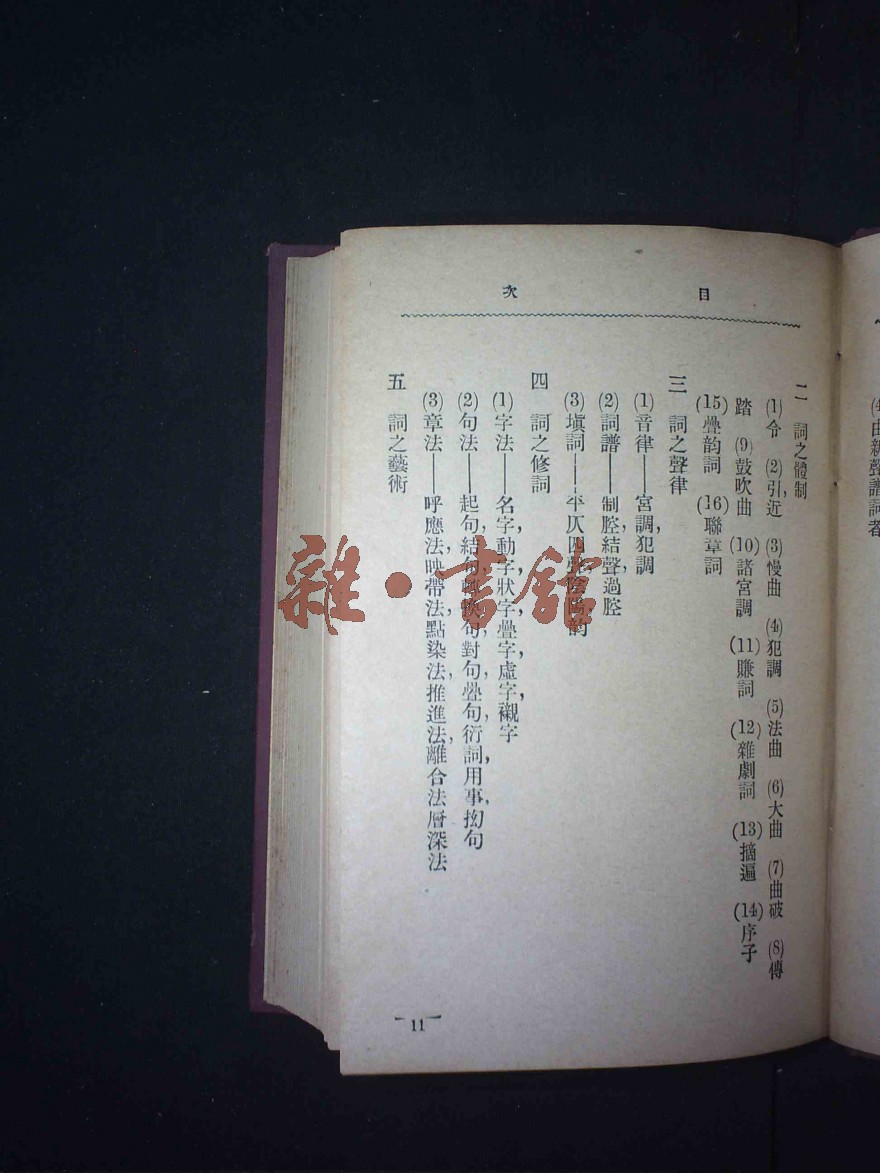 目次
二 詞之體制
(1)令 (2)引,近 (3)慢曲 (4)犯調 (5)法曲 (6)大曲 (7)曲破 (8)傳
踏 (9)鼓吹曲 (10)諸宮調 (11)賺詞 (12)雜劇詞 (13)摘遍 (14)序子
(15)疊韵詞 (16)聯章詞
三 詞之聲律
(1)音律——宮調,犯調
(2)詞譜 制腔,結聲,過腔
(3)塡詞——平仄,四聲,陰陽,韵
四 詞之修詞
(1)字法——名字,動字,狀字,疊字,虛字,襯字
(2)句法——起句,結句,句,對句,疊句,衍詞,用事,拗句
(3)章法——呼應法,映帶法,點染法,推進法,離合法,層深法
五 詞之藝術
11
(4)由新聲譜詞者
雜·書館